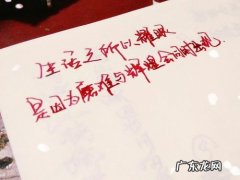 生活之所以耀眼
是因为磨难与辉煌会同时出现
广东龙网